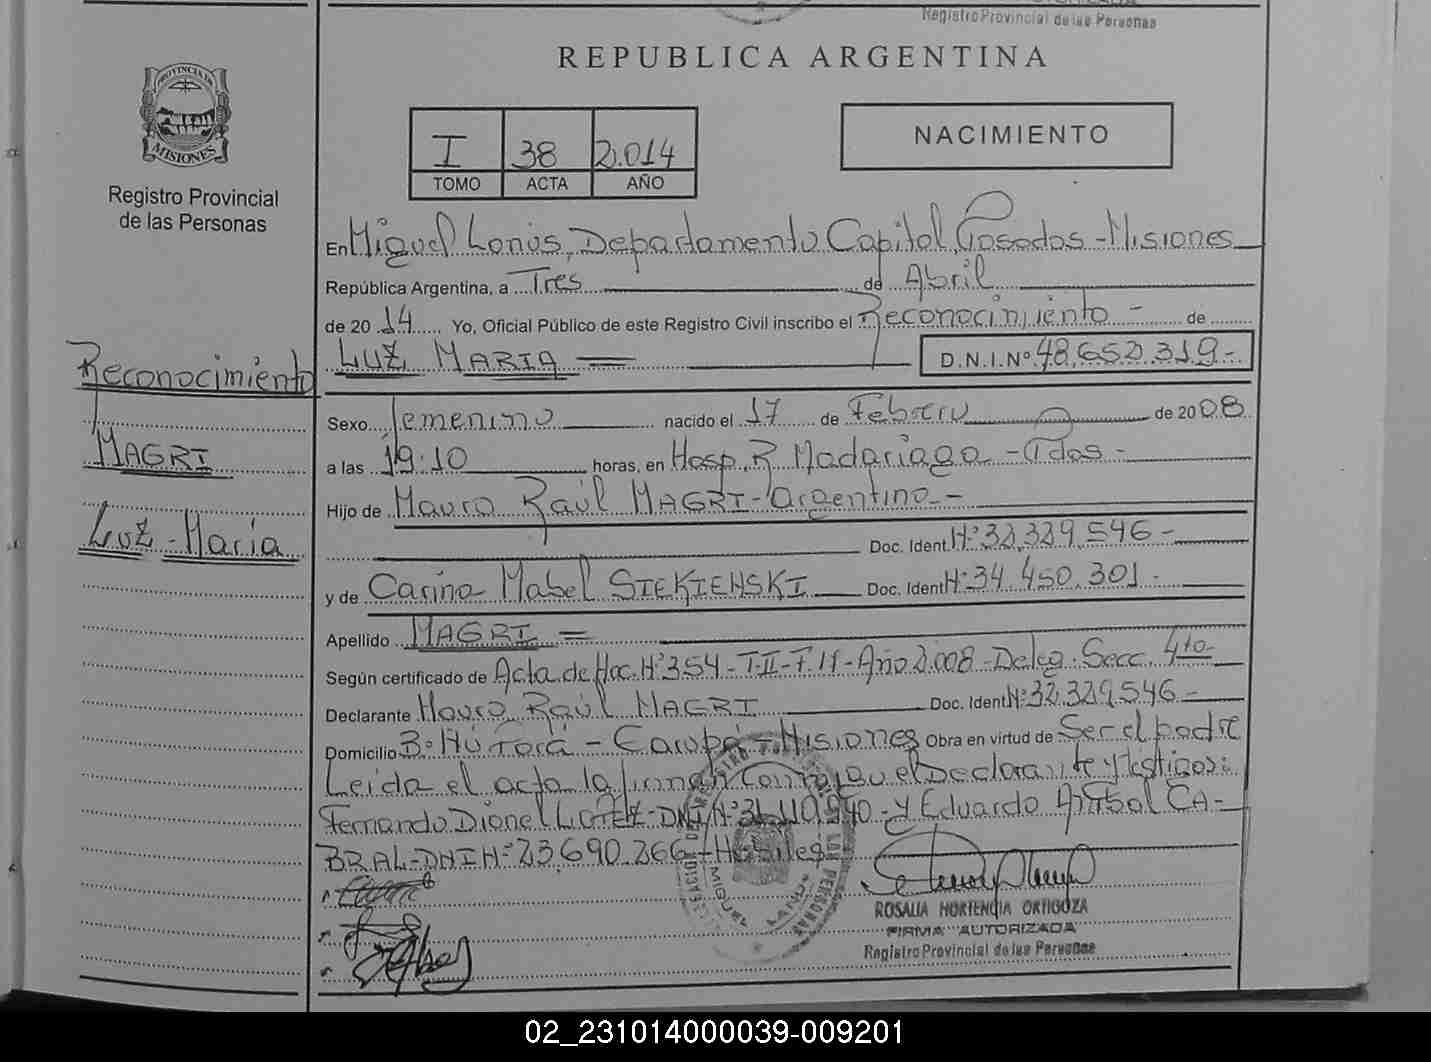 Registro Provincial de las Personas
REPUBLICA ARGENTINA
PROVINCIA DE
MISIONES
Registro Provincial
de las Personas
I 38 2.014
TOMO ACTA AÑO
NACIMIENTO
En Miguel Lanús, Departamento Capital, Posadas - Misiones
República Argentina, a Tres de Abril
de 20 14 Yo, Oficial Público de este Registro Civil inscribo el Reconocimiento - de
LUZ MARIA = D.N.I.Nº 48.652.319-
Reconocimiento
MAGRI
Luz - Maria
Sexo Femenino nacido el 17 de Febrero de 2008
a las 19:10 horas, en Hosp. R. Madariaga - Pdas -
Hijo de Mauro Raúl MAGRI - Argentino - -
Doc. Ident. Nº 32.329.546 -
y de Carina Mabel SIEKIENSKI Doc. Ident Nº 34.450.301 -
Apellido MAGRI =
Según certificado de Acta de Nac. Nº 354 - T. II - F. 11 - Año 2.008 - Deleg. Secc. 4ta -
Declarante Mauro Raúl MAGRI Doc. Ident Nº 32.329.546 -
Domicilio Bº Ñú Porá - Garupá - Misiones Obra en virtud de Ser el padre
Leida el acta la firman Conmigo el Declarante y Testigos:
Fernando Dionel LOPEZ - DNI Nº 31.110.940 - y Eduardo Anibal CA-
BRAL - DNI Nº 23.690.266 - Habiles -
ROSALIA HORTENCIA ORTIGOZA
FIRMA AUTORIZADA
Registro Provincial de las Personas
02_231014000039-009201